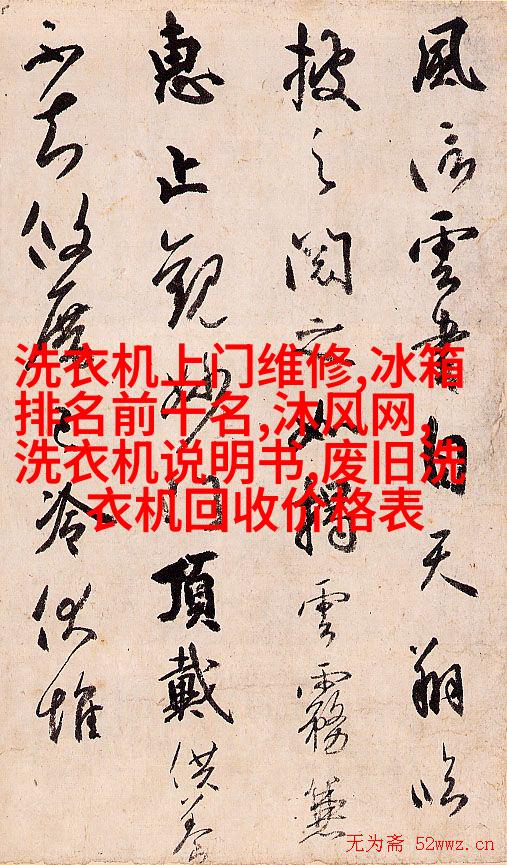 風信雲書自天翔臨
披之閱之如揭雲霧兼
惠止觀妙門頂戴供養
不知攸厝已冷伏惟
洗衣机上门维修,冰箱
排名前十名,沐风网,
洗衣机说明书,废旧洗
衣机回收价格表
无为斋 52wwz.cn